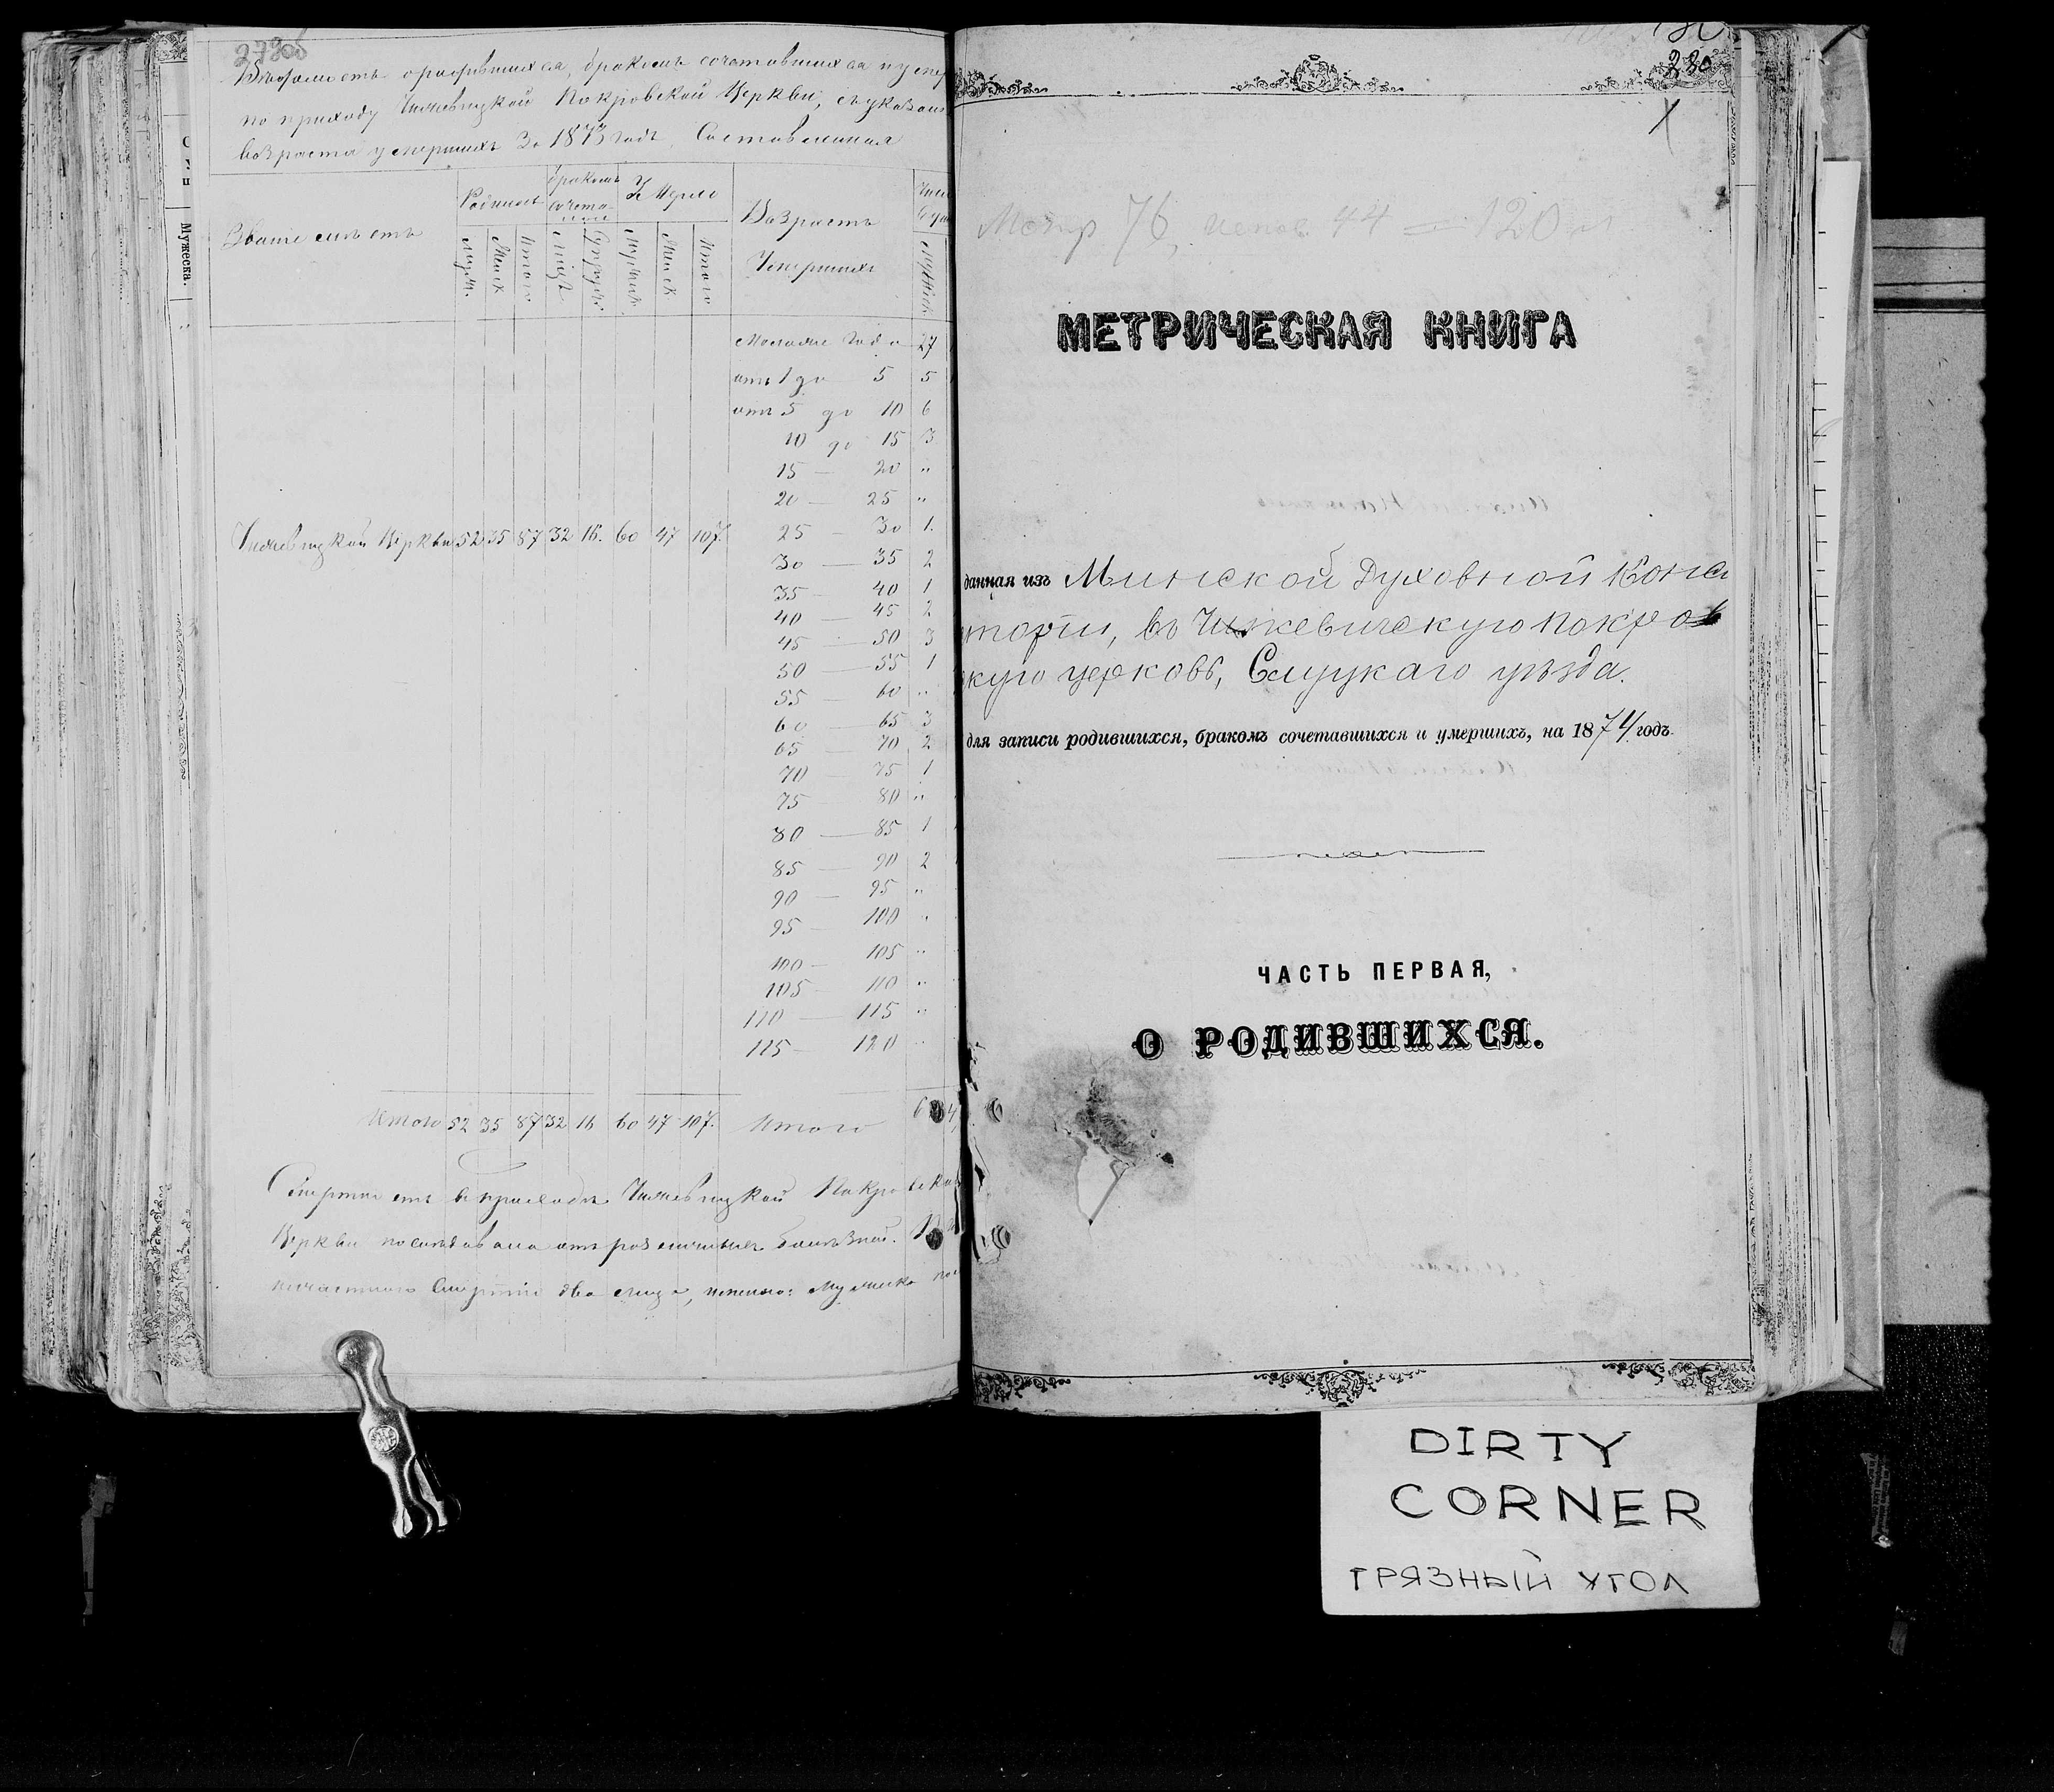 279об
Ведомость о родившихся, бракомъ сочетавшихся и умер
по приходу Чижевицкой Покровской Церкви, съ указан
возраста умершихъ За 1873 годъ, Составленная
Званіе мѣстъ
Родилось
бракомъ сочета
Умерло
Возрастъ Умершихъ
Число
Мужск.
Женск
Итого
Лицъ
Супруж.
Мужск.
Женск
Итого
Мужеск.
Моложе Года 27
отъ 1 до 5 5
отъ 5 до 10 6
10 до 15 3
15 — 20 "
20 — 25 "
Чижевицкой Церкви 52 35 87 32 16. 60 47 107. 25 — 30 1.
30 — 35 2
35 — 40 1
40 — 45 2
45 — 50 3
50 — 55 1
55 — 60 "
60 — 65 3
65 — 70 2
70 — 75 1
75 — 80 "
80 — 85 1
85 — 90 2
90 — 95 "
95 — 100 "
100 — 105 "
105 — 110 "
110 — 115 "
115 — 120 "
Итого 52 35 87 32 16 60 47 107. Итого
Смертность въ приходѣ Чижевицкой Покровской
Церкви послѣдовала отъ различныхъ болѣзней.
несчастною Смертію два лица, именно: Мужеска
Мужеска.
280
Метр 76, испов. 44 = 120 л
МЕТРИЧЕСКАЯ КНИГА
данная изъ Минской Духовной Конси
торіи, въ Чижевичскую Покров
скую церковь, Слуцкаго уѣзда.
для записи родившихся, бракомъ сочетавшихся и умершихъ, на 1874 годъ.
ЧАСТЬ ПЕРВАЯ,
О РОДИВШИХСЯ.
DIRTY
CORNER
ГРЯЗНЫЙ УГОЛ